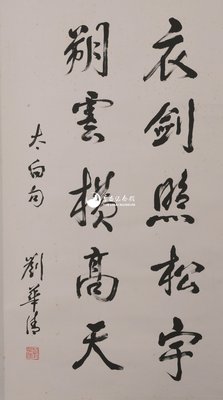 衣劍照松宇
朔雲横高天
太白句
劉華清